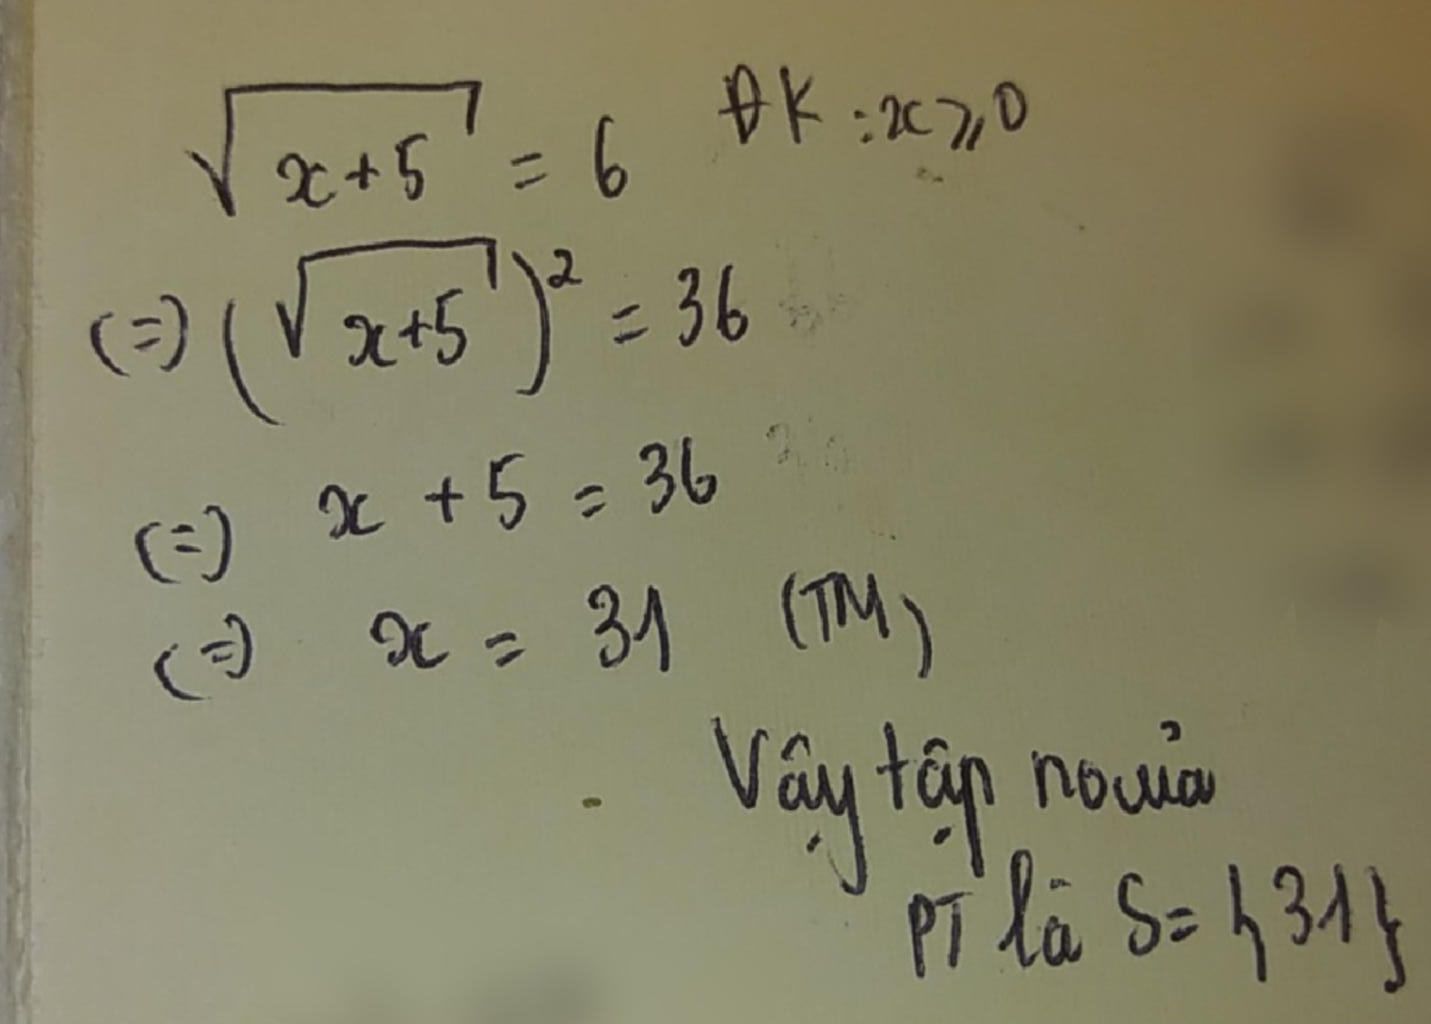 √(x+5) = 6 ĐK : x ⩾ 0
(=) (√(x+5))² = 36
(=) x + 5 = 36
(=) x = 31 (TM)
Vậy tập no của
PT là S = {31}